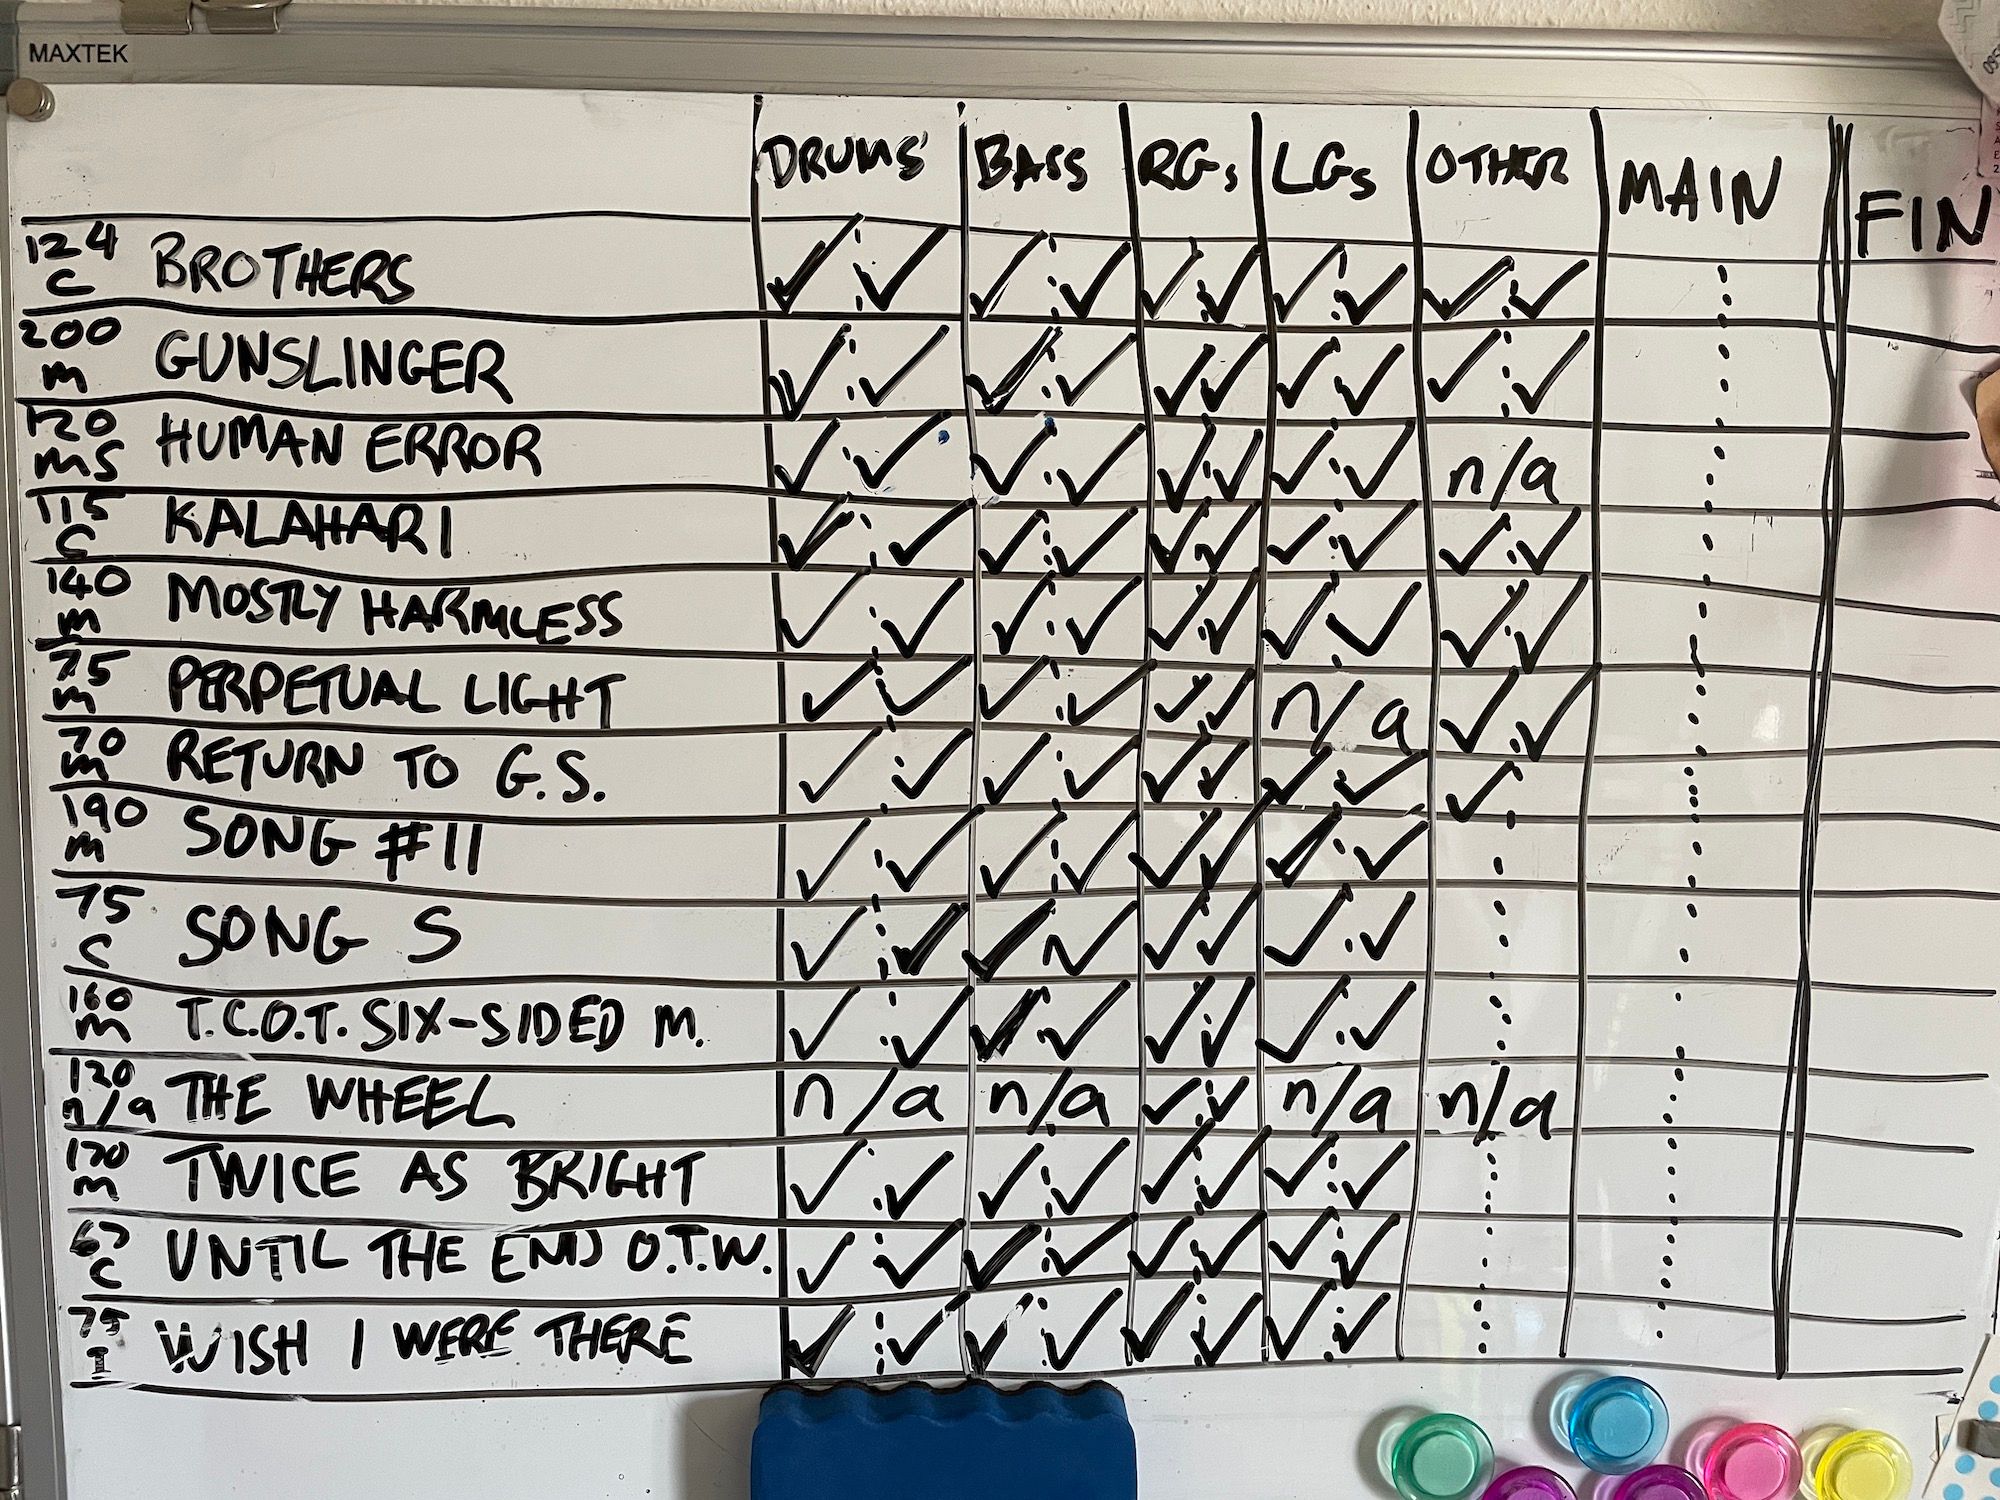 MAXTEK
DRUMS BASS RGs LGs OTHER MAIN FIN
124 C BROTHERS ✓ ✓ ✓ ✓ ✓ ✓ ✓ ✓ ✓ ✓
200 m GUNSLINGER ✓ ✓ ✓ ✓ ✓ ✓ ✓ ✓ ✓ ✓
120 ms HUMAN ERROR ✓ ✓ ✓ ✓ ✓ ✓ ✓ ✓ n/a
115 C KALAHARI ✓ ✓ ✓ ✓ ✓ ✓ ✓ ✓ ✓ ✓
140 m MOSTLY HARMLESS ✓ ✓ ✓ ✓ ✓ ✓ ✓ ✓ ✓ ✓
75 m PERPETUAL LIGHT ✓ ✓ ✓ ✓ ✓ ✓ n/a ✓ ✓
70 m RETURN TO G.S. ✓ ✓ ✓ ✓ ✓ ✓ ✓ ✓ ✓
190 m SONG #11 ✓ ✓ ✓ ✓ ✓ ✓ ✓ ✓
75 C SONG S ✓ ✓ ✓ ✓ ✓ ✓ ✓ ✓
160 m T.C.O.T. SIX-SIDED M. ✓ ✓ ✓ ✓ ✓ ✓ ✓ ✓
120 n/a THE WHEEL n/a n/a ✓ ✓ n/a n/a
m TWICE AS BRIGHT ✓ ✓ ✓ ✓ ✓ ✓ ✓ ✓
C UNTIL THE END O.T.W. ✓ ✓ ✓ ✓ ✓ ✓ ✓ ✓
75 WISH I WERE THERE ✓ ✓ ✓ ✓ ✓ ✓ ✓ ✓